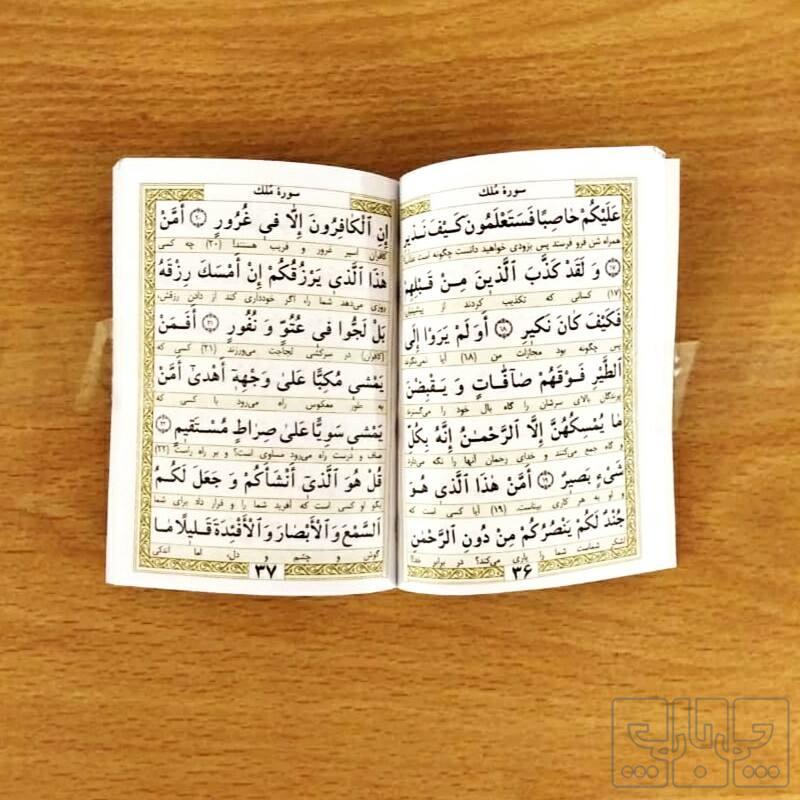 سورهٔ مُلک
عَلَيْكُمْ حٰاصِبًا فَسَتَعْلَمُونَ كَـيْفَ نَـذيرِ
همراه شن فرو فرستد پس بزودی خواهید دانست چگونه است
﴿١٧﴾ وَ لَقَدْ كَذَّبَ الَّذينَ مِـنْ قَبْلِهِمْ
(۱۷) کسانی که تکذیب کردند از پیشینیان
فَكَيْفَ كَانَ نَكيرِ ﴿١٨﴾ أَوَ لَمْ يَرَوْا إِلَى
پس چگونه بود مجازات من (۱۸) آیا نمی‌نگرند
الطَّيْرِ فَـوْقَهُمْ صٰافّٰاتٍ وَ يَـقْبِضْنَ
پرندگان بالای سرشان را گاه بال خود را می‌گسترند
مٰا يُمْسِكُهُنَّ إِلَّا الرَّحْمٰنُ إِنَّهُ بِكُلِّ
و گاه جمع می‌کنند و خدای رحمان آنها را نگه می‌دارد
شَيْءٍ بَصيرٌ ﴿١٩﴾ أَمَّنْ هٰذَا الَّذي هُوَ
و او به هر کاری بیناست. (۱۹) آیا کسی است که
جُنْدٌ لَكُمْ يَنْصُرُكُمْ مِنْ دُونِ الرَّحْمٰنِ
لشکر شماست شما را یاری می‌کند؟ در برابر خدا؟
۳۶
سورهٔ مُلک
إِنِ الْكٰافِرُونَ إِلّٰا في غُرُورٍ ﴿٢٠﴾ أَمَّنْ
کافران اسیر غرور و فریب هستند! (۲۰) چه کسی
هٰذَا الَّذي يَرْزُقُكُمْ إِنْ أَمْسَكَ رِزْقَهُ
روزی می‌دهد شما را، اگر خودداری کند از دادن رزقش،
بَلْ لَجُّوا في عُتُوٍّ وَ نُفُورٍ ﴿٢١﴾ أَفَمَنْ
(کافران) در سرکشی لجاجت می‌ورزند (۲۱) کسی که
يَمْشي مُكِبًّا عَلىٰ وَجْهِهِ أَهْدىٰ أَمَّنْ
به طور معکوس راه می‌رود با کسی که
يَمْشي سَوِيًّا عَلىٰ صِرٰاطٍ مُسْتَقيمٍ ﴿٢٢﴾
صاف و درست راه می‌رود مساوی است؟ و بر راه راست (۲۲)
قُلْ هُوَ الَّذي أَنْشَأَكُمْ وَ جَعَلَ لَكُـمُ
بگو او کسی است که آفرید شما را و قرار داد برای شما
السَّمْعَ وَ الْأَبْصٰارَ وَ الْأَفْئِدَةَ قَـلِيلًا مٰا
گوش و چشم و دل، اما اندکی
۳۷